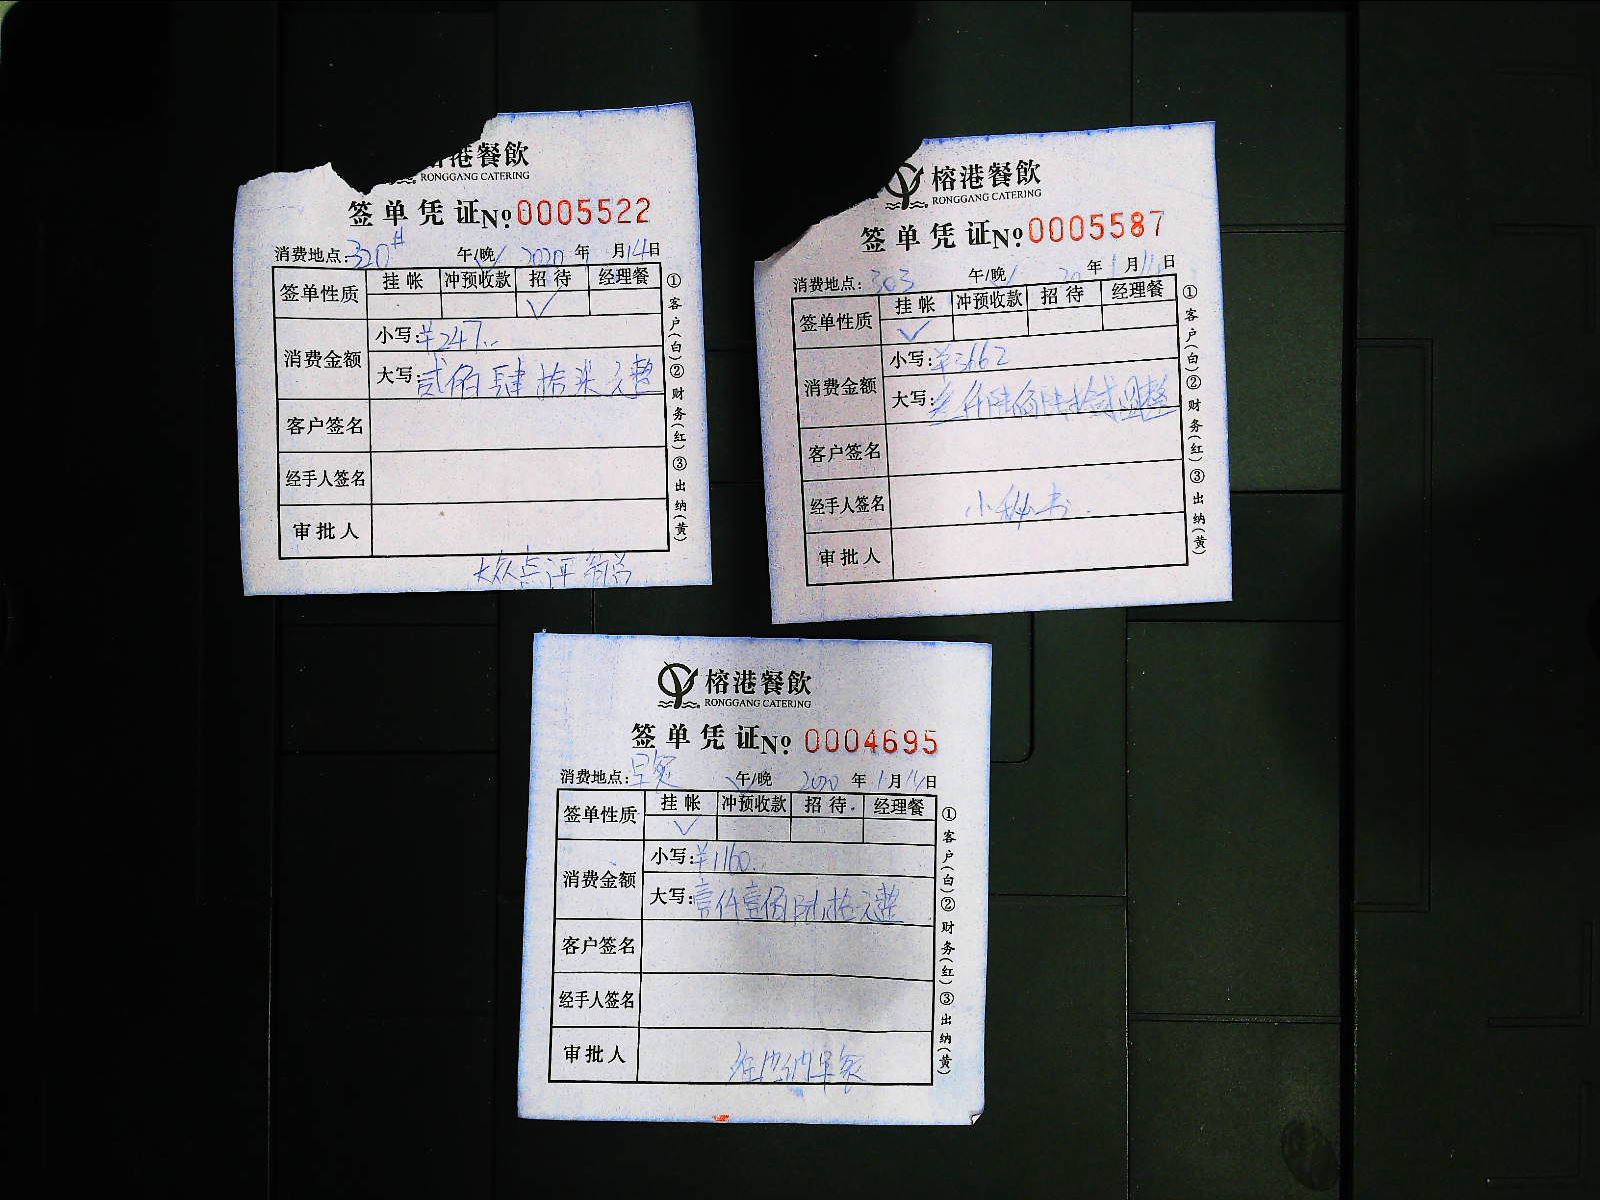 港餐飲
RONGGANG CATERING
签单凭证№0005522
消费地点:320# 午/晚 2020年 月14日
签单性质 挂帐 冲预收款 招待 经理餐
✓
消费金额 小写:¥247..
大写:贰佰肆拾柒元整
客户签名
经手人签名
审批人
大众点评
①客户(白)②财务(红)③出纳(黄)
榕港餐飲
RONGGANG CATERING
签单凭证№0005587
消费地点:303 午/晚 20年1月11日
签单性质 挂帐 冲预收款 招待 经理餐
✓
消费金额 小写:¥3662
大写:叁仟陆佰陆拾贰圆整
客户签名
经手人签名 小秘书.
审批人
①客户(白)②财务(红)③出纳(黄)
榕港餐飲
RONGGANG CATERING
签单凭证№0004695
消费地点:早餐 午/晚 2020年1月14日
签单性质 挂帐 冲预收款 招待. 经理餐
✓
消费金额 小写:¥1160..
大写:壹仟壹佰陆拾元整
客户签名
经手人签名
审批人 维也纳早餐
①客户(白)②财务(红)③出纳(黄)